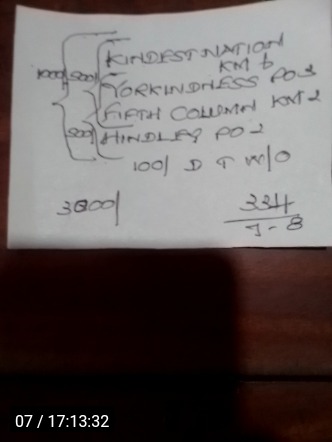 KINDEST NATION
KM 6
YORKINDNESS PO 3
1000/ 500/
FIFTH COLUMN KM 2
500/ HINDLEY PO 2
100/ D T W/O
3000/
334
7-8
07 / 17:13:32